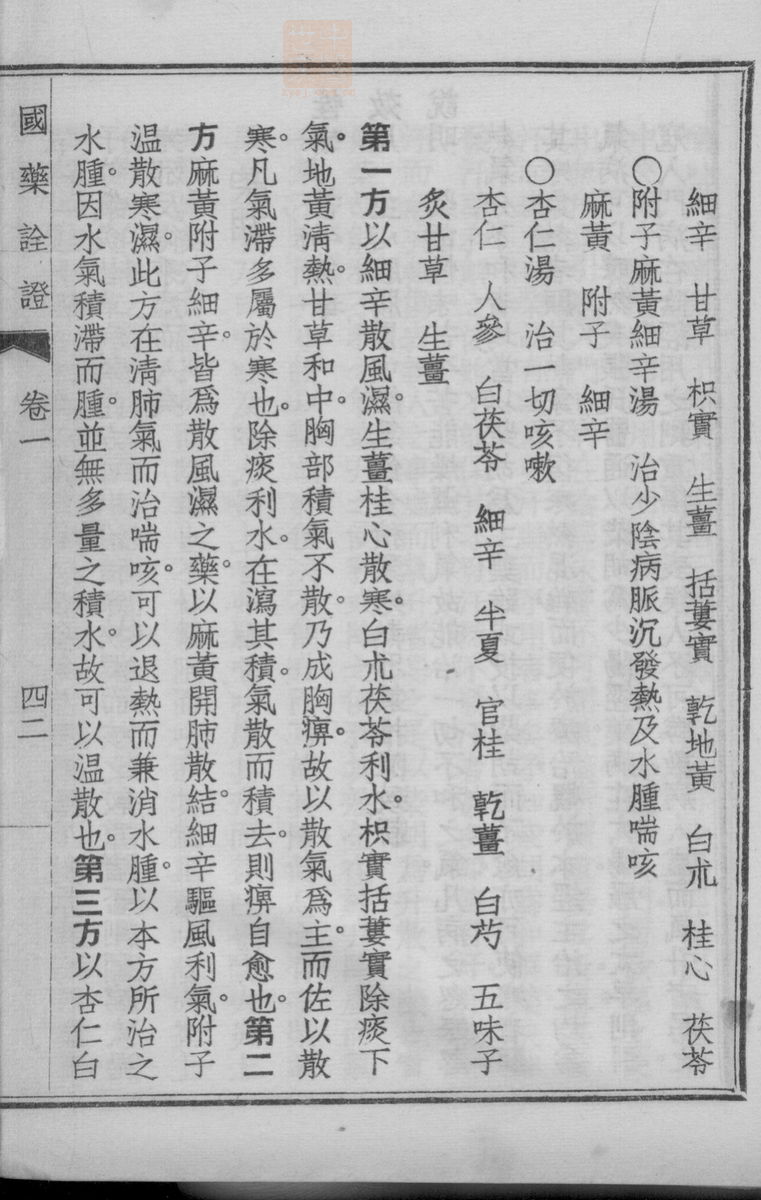 細辛　甘草　枳實　生薑　括蔞實　乾地黃　白朮　桂心　茯苓
○附子麻黃細辛湯　治少陰病脈沉發熱及水腫喘咳
麻黃　附子　細辛
○杏仁湯　治一切咳嗽
杏仁　人參　白茯苓　細辛　半夏　官桂　乾薑　白芍　五味子
炙甘草　生薑
第一方以細辛散風濕。生薑桂心散寒。白朮茯苓利水。枳實括蔞實除痰下
氣。地黃淸熱。甘草和中。胸部積氣不散。乃成胸痹。故以散氣爲主。而佐以散
寒。凡氣滯多屬於寒也。除痰利水。在瀉其積。氣散而積去。則痹自愈也。第二
方麻黃附子細辛。皆爲散風濕之藥。以麻黃開肺散結。細辛驅風利氣。附子
温散寒濕。此方在清肺氣而治喘咳。可以退熱而兼消水腫。以本方所治之
水腫。因水氣積滯而腫。並無多量之積水。故可以温散也。第三方以杏仁白
國藥詮證　卷一　四二